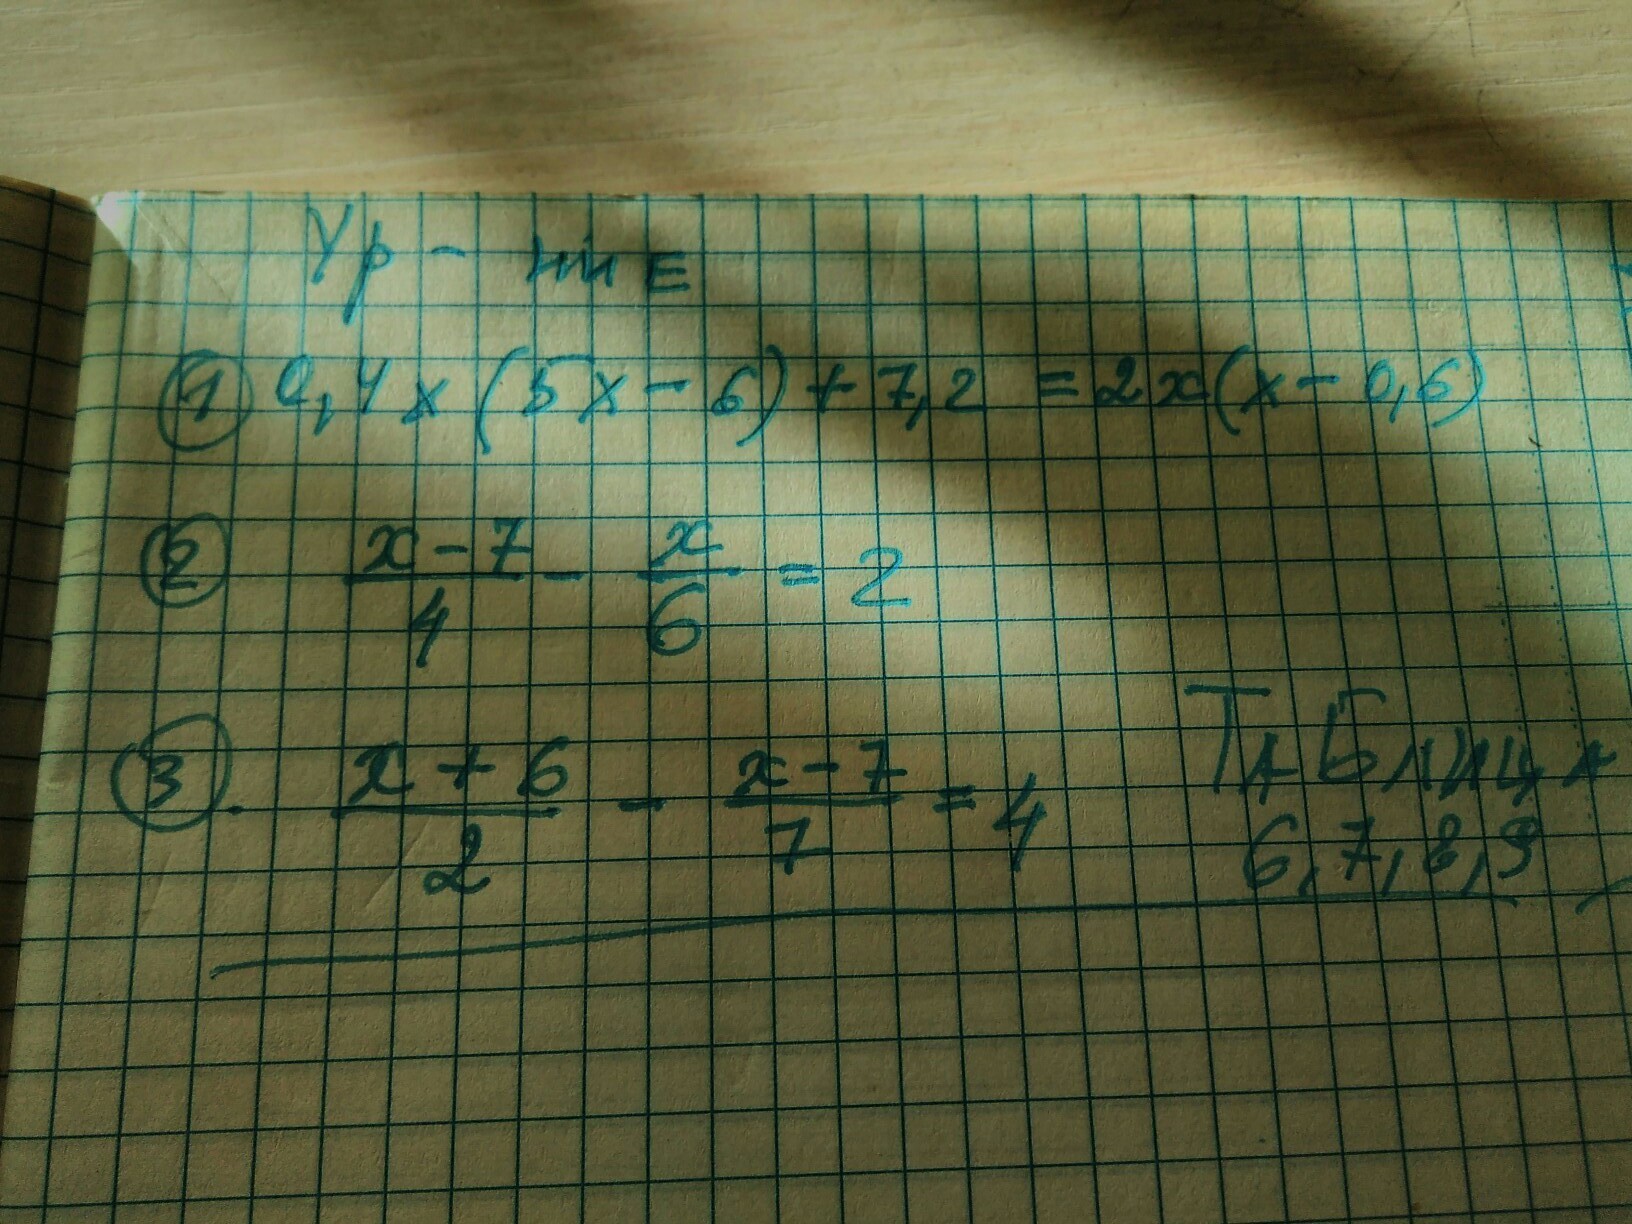 Ур-ние
① 0,4x(5x-6)+7,2 = 2x(x-0,6)
② x-7/4 - x/6 = 2
③. x+6/2 - x-7/7 = 4
Таблица
6,7,8,9